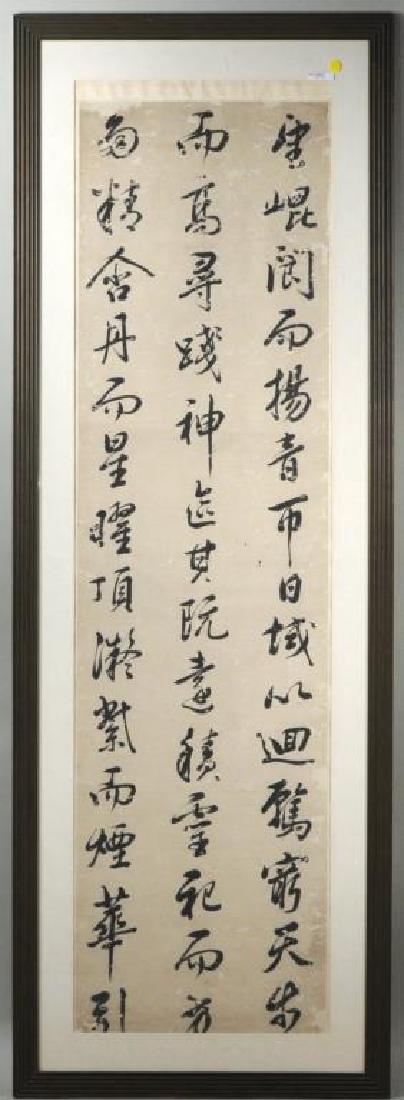 望崐閬而揚音帀日域以迴騖窮天步
而高尋踐神區其既遠積靈祀而方
多精含丹而星曜頂凝紫而煙華引